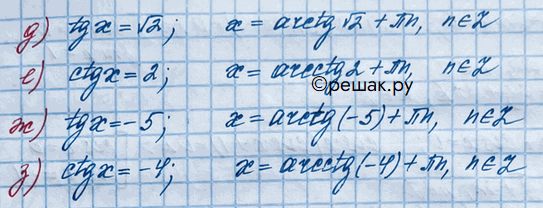 д) tgx = √2; x = arctg√2 + πn, n∈Z
е) ctgx = 2; x = arcctg2 + πn, n∈Z
©решак.ру
ж) tgx = -5; x = arctg(-5) + πn, n∈Z
з) ctgx = -4; x = arcctg(-4) + πn, n∈Z